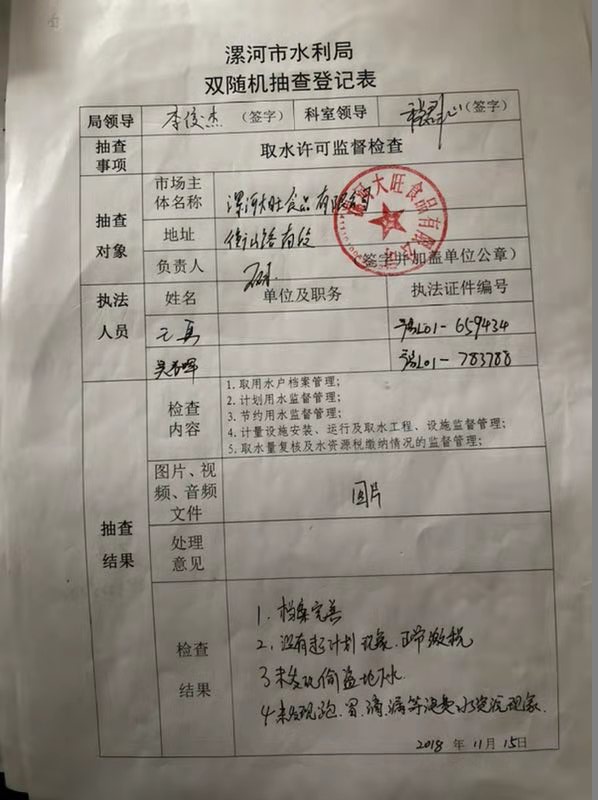 漯河市水利局
双随机抽查登记表
局领导 李俊杰 （签字） 科室领导 （签字）
抽查事项 取水许可监督检查
抽查对象
市场主体名称 漯河大旺食品有限公司
地址 衡山路南段
负责人 签字并加盖单位公章）
漯河大旺食品有限公司
执法人员 姓名 单位及职务 执法证件编号
王真 豫L01-659434
豫L01-783788
抽查结果
检查内容
1. 取用水户档案管理；
2. 计划用水监督管理；
3. 节约用水监督管理；
4. 计量设施安装、运行及取水工程、设施监督管理；
5. 取水量复核及水资源税缴纳情况的监督管理；
图片、视频、音频文件 图片
处理意见
检查结果
1. 档案完善
2. 没有超计划现象.正常缴税
3 未发现偷盗地下水
4 未发现跑.冒.滴.漏等浪费水资源现象.
2018 年 11 月 15 日